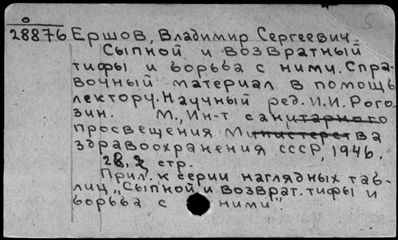 28876 Ершов, Владимир Сергеевич.
Сыпной и возвратный
тифы и борьба с ними. Спра-
вочный материал в помощь
лектору. Научный ред. И.И. Рого-
зин. М., Ин-т санитарного
просвещения Министерства
здравоохранения СССР, 1946.
28, 2 стр.
Прил. к серии наглядных таб-
лиц „Сыпной и возврат. тифы и
борьба с ними".